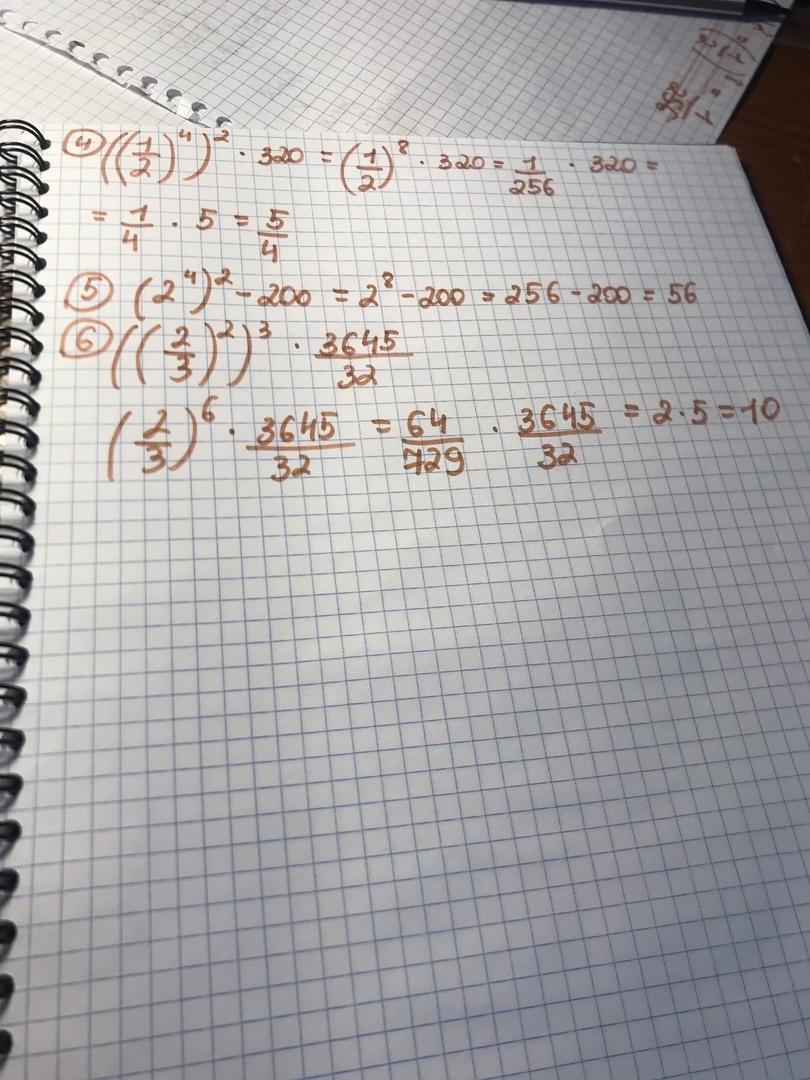 ④ ((1/2)^4)^2 · 320 = (1/2)^8 · 320 = 1/256 · 320 =
= 1/4 · 5 = 5/4
⑤ (2^4)^2 - 200 = 2^8 - 200 = 256 - 200 = 56
⑥ ((2/3)^2)^3 · 3645/32
(2/3)^6 · 3645/32 = 64/729 · 3645/32 = 2·5 = 10